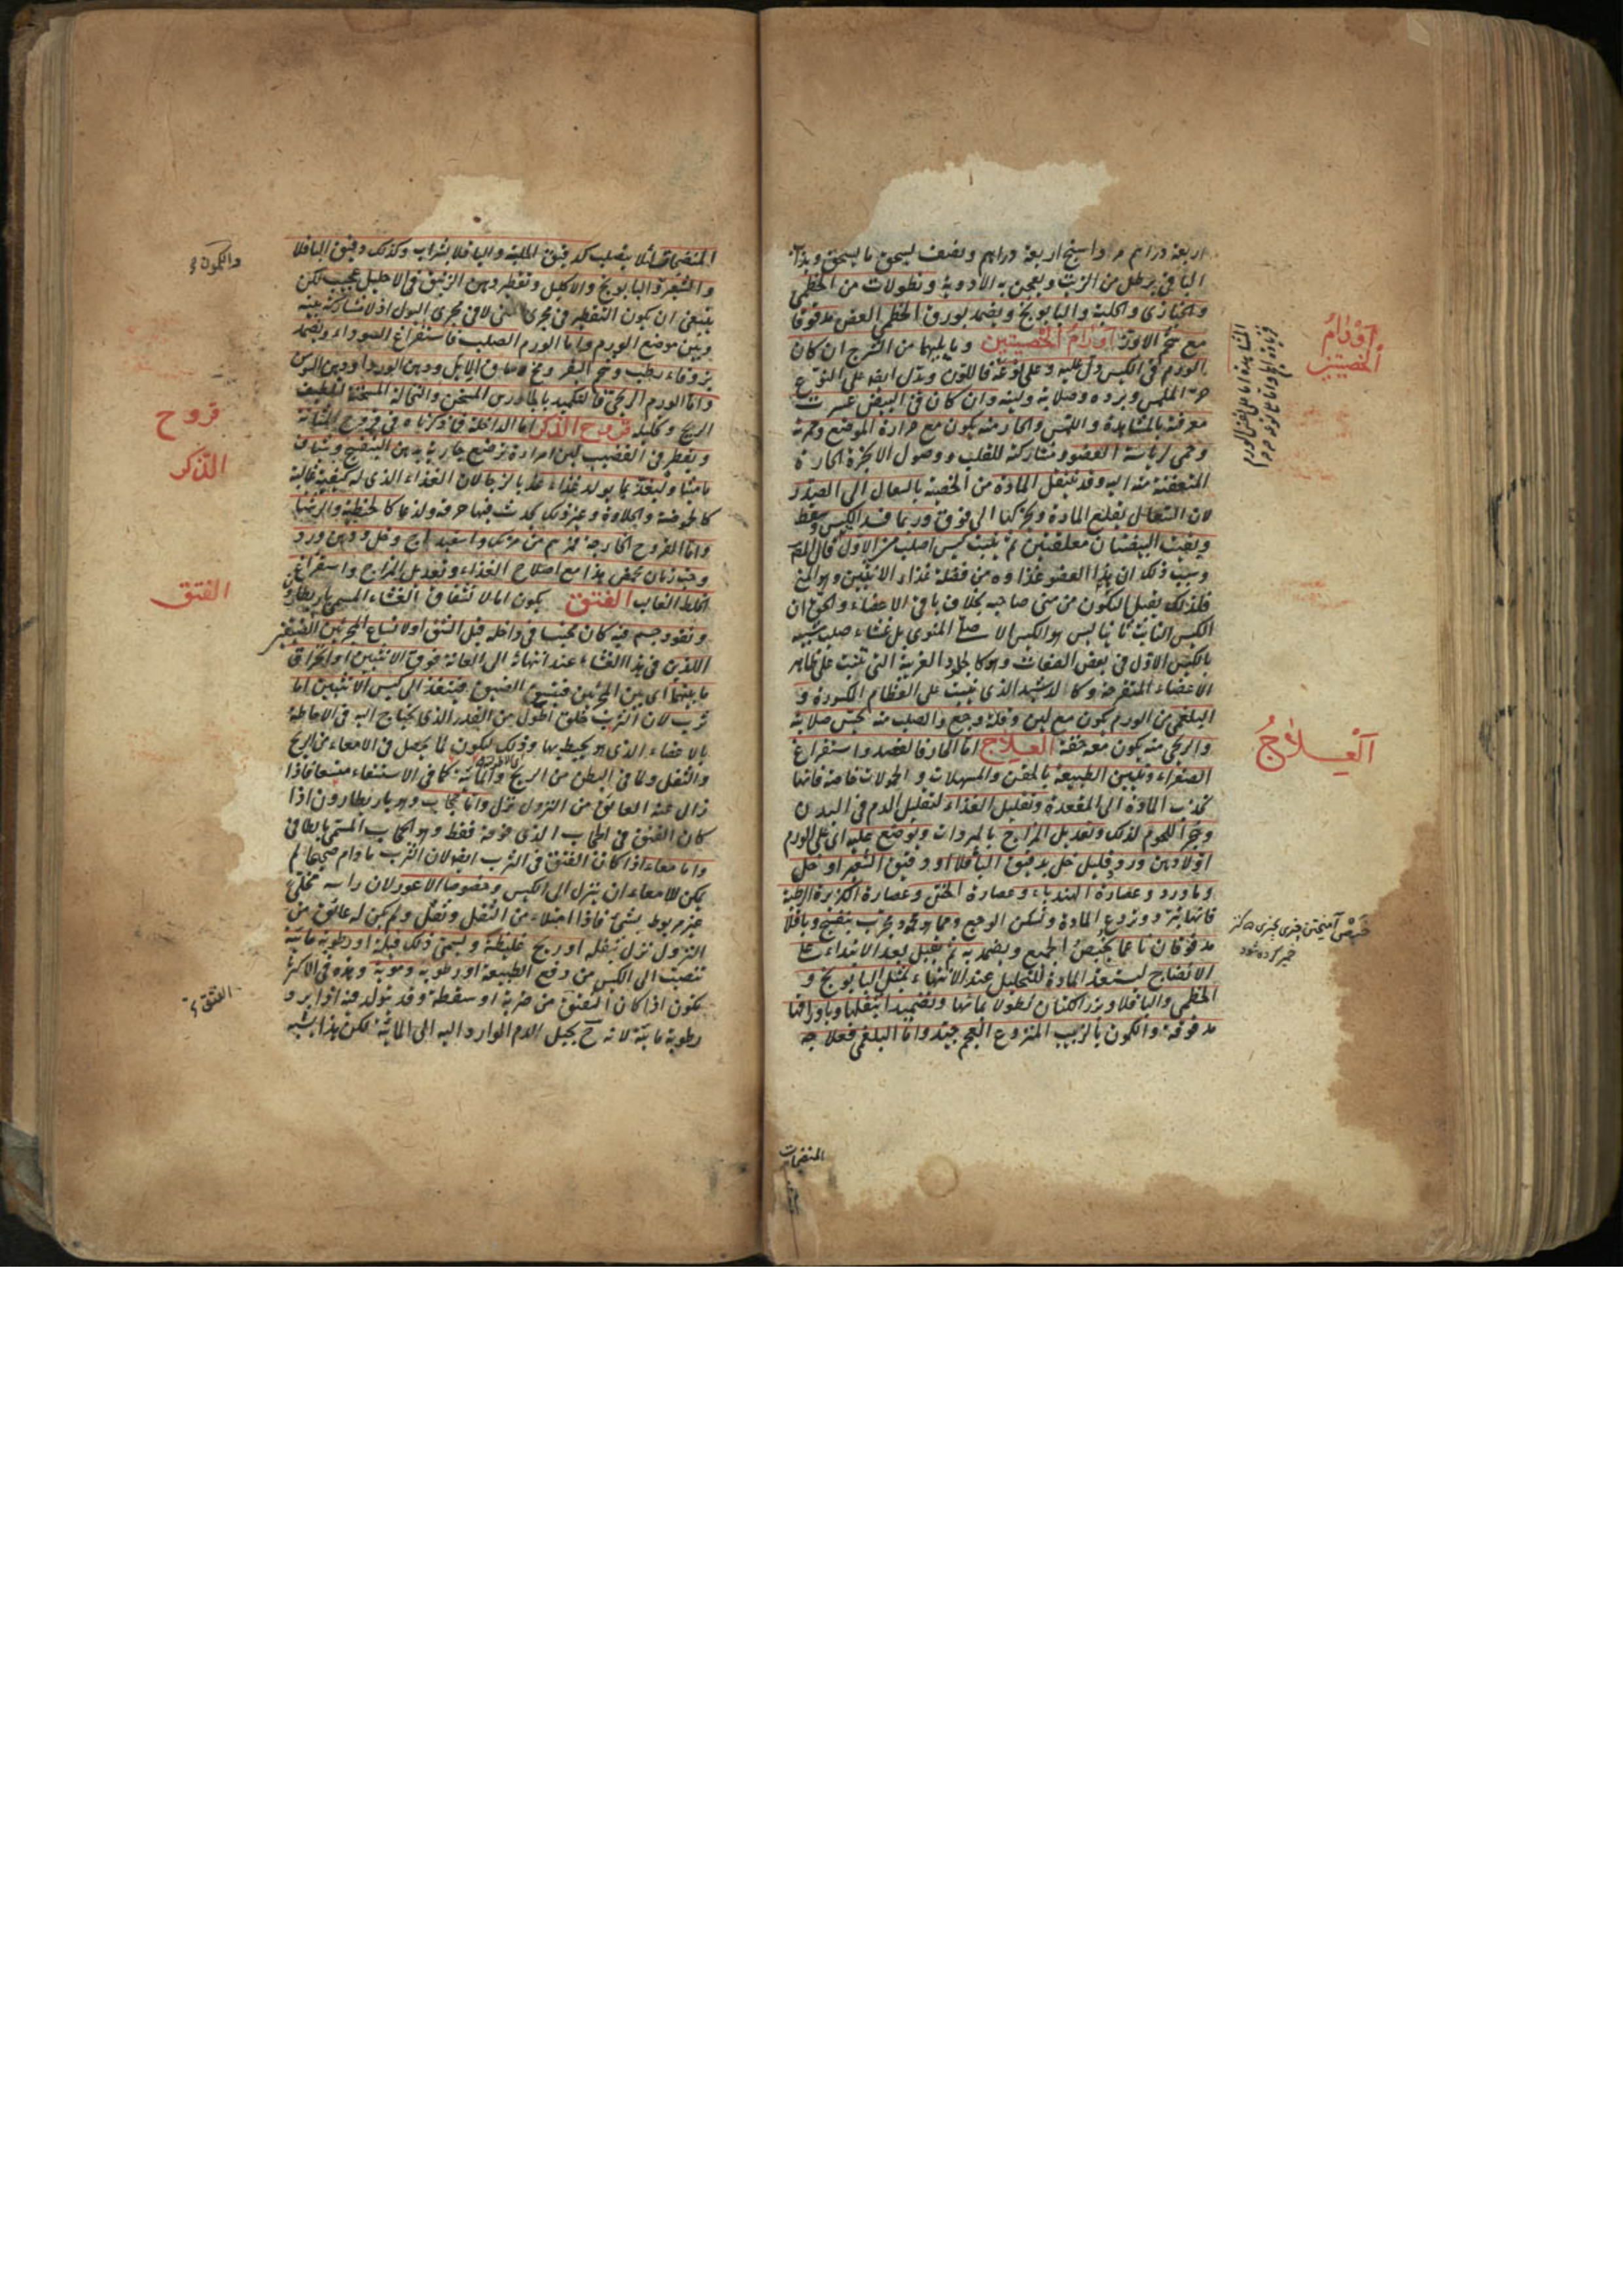 اربعة دراهم مرداسنج اربعة دراهم ونصف يسحق ما يسحق ويذاب
الباقى برطل من الزيت ويعجن به الادوية ونطولات من الخطمى
والخبازى والحلبة والبابونج ويضمد بورق الخطمى الغض مدقوقا
مع شحم الاوز اورام الخصيتين وما يليهما من الشرج ان كان
الورم فى الكيس دل عليه وعلى نوعه فاللون ويدل ايضا على النوع
حر الملمس وبرده وصلابته ولينه وان كان فى البيض عسرت
معرفته بالمشاهدة واللمس والحار منه يكون مع حرارة الموضع وحمرته
وحمى لرياسة العضو ومشاركته للقلب ووصول الابخرة الحارة
المتعفنة منه اليه وقد تنتقل المادة من الخصية بالسعال الى الصدر
لان السعال يقلع المادة ويحركها الى فوق وربما فسد الكيس وسقط
وبقيت البيضتان معلقتين ثم ينبت كيس اصلب من الاول قال
وسبب ذلك ان هذا العضو غذاوه من فضلة غذاء الانثيين وهو المنى
فلذلك يقبل التكون من منى صاحبه بخلاف باقى الاعضاء والحق ان
الكيس النابت ثانيا ليس هو الكيس الاصلى المنوى بل غشاء صلب شبيه
بالكيس الاول فى بعض الصفات وهو كالجلود الغريبة التى تنبت على ظاهر
الاعضاء المتقرحة وكالدشبد الذى ينبت على العظام المكسورة و
البلغمى من الورم يكون مع لين وقلة وجع والصلب منه يحس صلابته
والريحى منه يكون معه خفة العلاج اما الحار فالفصد واستفراغ
الصفراء وتليين الطبيعة بالحقن والمسهلات والحمولات خاصة فانها
تجذب المادة الى المقعدة وتقليل الغذاء لتقليل الدم فى البدن
وهجر اللحوم لذلك وتعديل المزاج بالمبردات ويوضع عليه اى على الورم
اولا دهن ورد وقليل خل بدقيق الباقلا او دقيق الشعير او خل
وماورد وعصارة الهندباء وعصارة الخس وعصارة الكزبرة الرطبة
فانها تبرد وتردع المادة وتسكن الوجع ومما هو مجرب بنفسج وباقلا
مدقوقان ناعما يخبص الجميع ويضمد به ثم يقبل بعد الابتداء على
الانضاج ليستعد المادة للتحليل عند الانتهاء بمثل البابونج و
الخطمى والباقلا وبزر الكتان نطولا بمائها وتضميدا بثفلها وباوراقها
مدقوقة والكمون بالزبيب المنزوع العجم جيد واما البلغمى فعلاجه
المنضجات
اورام
الخصيتين
العلاج
خبص آميختن چيزى بچيزى
خمير كرده شود
المنضجات لئلا يصلب كدقيق الحلبة والباقلا بشراب وكذلك دقيق الباقلا
والشعير والبابونج والاكليل وتقطير دهن الزنبق فى الاحليل عجيب لكن
ينبغى ان يكون التقطير فى مجرى المنى لا فى مجرى البول اذ لا مشاركة بينه
وبين موضع الورم واما الورم الصلب فاستفراغ السوداء ويضمد
بزوفاء رطب وشحم البقر ومخ ساق الايل ودهن الورد او دهن السوسن
واما الورم الريحى فالتكميد بالجاورس المسخن والنخالة المسخنة لتلطيف
الريح وتحليله قروح الذكر اما الداخلة فما ذكرناه فى قروح المثانة
ويقطر فى القضيب لبن امراة ترضع جارية بدهن البنفسج وشياف
ماميثا وليغتذ بما يولد غذاء عذبا لزجا لان الغذاء الذى له كيفية غالبة
كالحموضة والحلاوة وغير ذلك يحدث فيها حرقة ولذعا كالحنطية والرشتا
واما القروح الخارجة فمرهم من مرتك واسفيداج وخل ودهن ورد
وخبث زمان يخفض هذا مع اصلاح الغذاء وتعديل المزاج واستفراغ
الخلط الغالب الفتق يكون اما لانشقاق الغشاء المسمى باريطارون
ونفوذ جسم فيه كان محتبسا فى داخله قبل الشق او لاتساع المجريين الضيقين
اللذين فى هذا الغشاء عند انتهائه الى العانة فوق الانثيين او انخراق
ما بينهما اى بين المجريين فيتسع الضيق فينفذ الى كيس الانثيين اما
ثرب لان الثرب خلق اطول من القدر الذى يحتاج اليه فى الاحاطة
بالاعضاء الذى هو يحيط بها وذلك ليكون لما يحصل فى الامعاء من الريح
والثفل ولما فى البطن من الريح والمائية كما فى الاستسقاء متسعا فاذا
زال عنه العائق من النزول نزل واما حجاب وهو باريطارون اذا
كان الفتق فى الحجاب الذى فوقه فقط وهو الحجاب المسمى بالطافى
واما معاء اذا كان الفتق فى الثرب ايضا لان الثرب مادام صحيحا لم
يمكن للامعاء ان ينزل الى الكيس وخصوصا الاعور لان راسه مخلى
غير مربوط بشئ فاذا امتلاء من الثفل وثقل ولم يكن له عائق من
النزول نزل بثقله او ريح غليظة ويسمى ذلك قيلة او رطوبة مائية
تنصب الى الكيس من دفع الطبيعة او رطوبة دموية وهذه فى الاكثر
تكون اذا كان الفتق من ضربة او سقطة وقد يتولد فيه اذا برد
رطوبة مائية لانه ح يحيل الدم الوارد اليه الى المائية لكن هذا يشبه
والكمون
قروح
الذكر
الفتق
الفتق